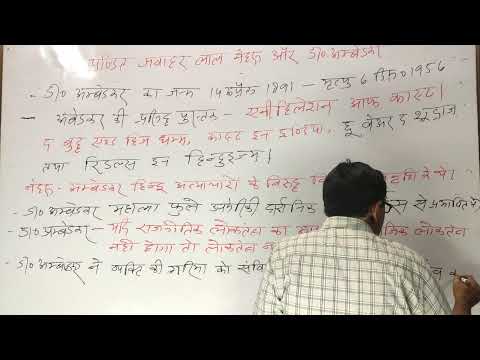 पण्डित जवाहर लाल नेहरू और डा० अम्बेडकर
- डा० अम्बेडकर का जन्म 14 अप्रैल 1891 - मृत्यु 6 दिस० 1956
- अंबेडकर की प्रसिद्ध पुस्तक - एनीहिलेशन आफ कास्ट।
द बुद्ध एण्ड हिज धम्म, कास्ट इन इण्डिया, हू वेअर द शूद्राज
तथा रिडल्स इन हिन्दुइज्म।
नेहरू - अम्बेडकर हिन्दू अत्याचारों के विरुद्ध
- डा० अम्बेडकर महात्मा फुले अमेरिकी दार्शनिक से प्रभावित थे
- डा० अम्बेडकर - यदि राजनीतिक लोकतंत्र का लोकतंत्र
नहीं होगा तो लोकतंत्र
- डा० अम्बेडकर ने व्यक्ति की गरिमा को